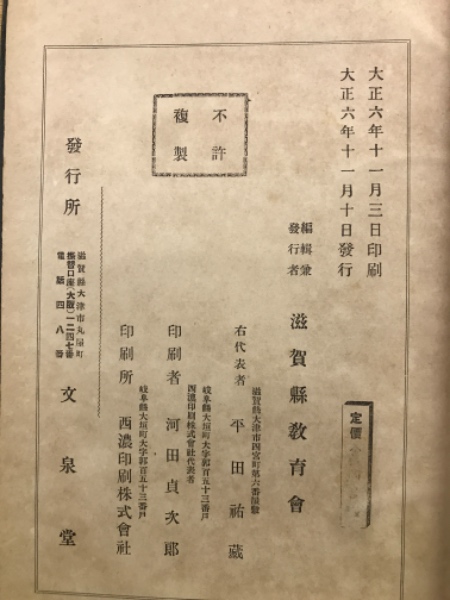 大正六年十一月三日印刷
大正六年十一月十日發行
不許
複製
定價
編輯兼
發行者
滋賀縣教育會
滋賀縣大津市四宮町第六番屋敷
右代表者 平田祐藏
岐阜縣大垣町大字郭百五十三番戶
西濃印刷株式會社代表者
印刷者 河田貞次郎
岐阜縣大垣町大字郭百五十三番戶
印刷所 西濃印刷株式會社
發行所
滋賀縣大津市丸屋町
振替口座(大阪)一二四七番
電話四八番
文泉堂